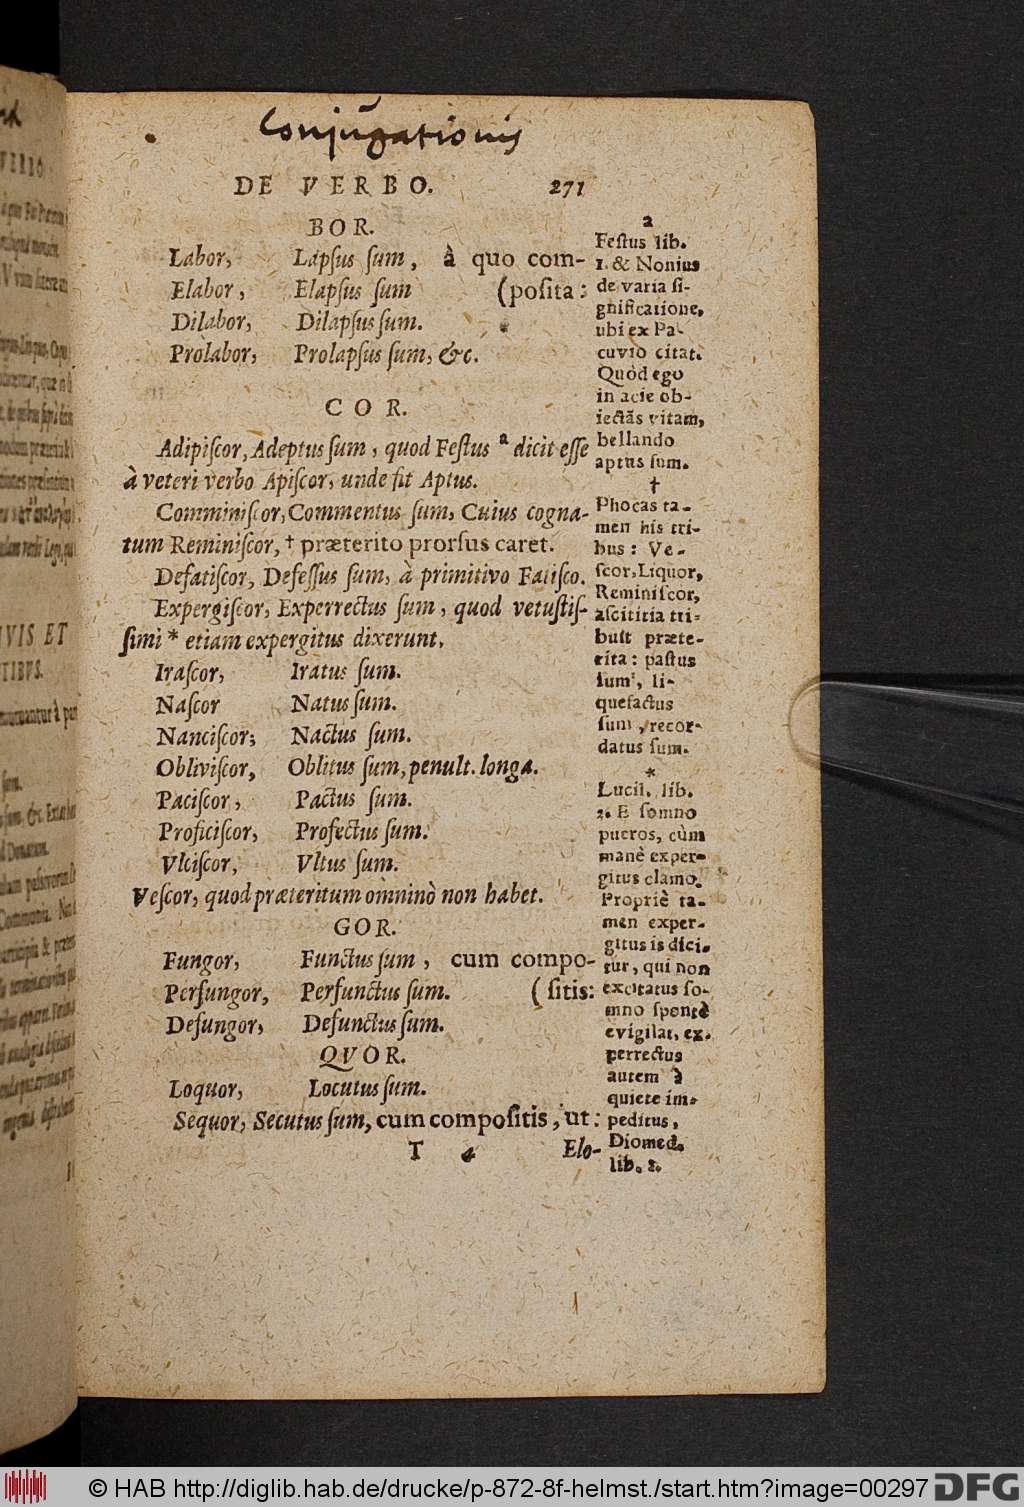 Conjugationis
DE VERBO. 271
BOR.
Labor, Lapſus ſum, à quo com-
Elabor, Elapſus ſum (poſita:
Dilabor, Dilapſus ſum.
Prolabor, Prolapſus ſum, &c.
COR.
Adipiſcor, Adeptus ſum, quod Feſtus a dicit eſſe
à veteri verbo Apiſcor, unde fit Aptus.
Comminiſcor, Commentus ſum, Cuius cogna-
tum Reminiſcor, † præterito prorſus caret.
Defatiſcor, Defeſſus ſum, à primitivo Fatiſco.
Expergiſcor, Experrectus ſum, quod vetuſtiſ-
ſimi * etiam expergitus dixerunt.
Iraſcor, Iratus ſum.
Naſcor Natus ſum.
Nanciſcor, Nactus ſum.
Obliviſcor, Oblitus ſum, penult. longa.
Paciſcor, Pactus ſum.
Proficiſcor, Profectus ſum.
Vlciſcor, Vltus ſum.
Veſcor, quod præteritum omninò non habet.
GOR.
Fungor, Functus ſum, cum compo-
Perfungor, Perfunctus ſum. (ſitis:
Defungor, Defunctus ſum.
QVOR.
Loquor, Locutus ſum.
Sequor, Secutus ſum, cum compoſitis, ut:
T 4 Elo-
a
Feſtus lib.
1. & Nonius
de varia ſi-
gnificatione,
ubi ex Pa-
cuvio citat.
Quòd ego
in acie ob-
iectãs vitam,
bellando
aptus ſum.
†
Phocas ta-
men his tri-
bus: Ve-
ſcor, Liquor,
Reminiſcor,
aſcititia tri-
buit præte-
rita: paſtus
ſum, li-
quefactus
ſum, recor-
datus ſum.
*
Lucil. lib.
2. E ſomno
pueros, cùm
manè exper-
gitus clamo.
Propriè ta-
men exper-
gitus is dici-
tur, qui non
excitatus ſo-
mno ſpontè
evigilat, ex-
perrectus
autem à
quiete im-
peditus,
Diomed.
lib. 1.
© HAB http://diglib.hab.de/drucke/p-872-8f-helmst./start.htm?image=00297
DFG